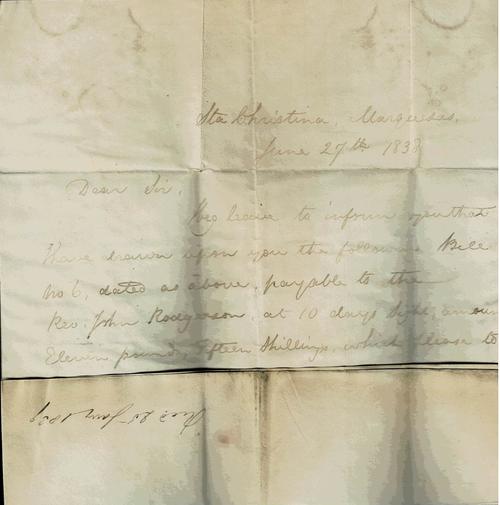 Sta Christina, Marquesas.
June 27th 1838
Dear Sir,
I beg leave to inform you that
I have drawn upon you the following Bill
No 6, dated as above, payable to the
Rev. John Rodgerson, at 10 days sight, amoun
Eleven pounds, fifteen Shillings, which please to
Recd 25 Jany 1839